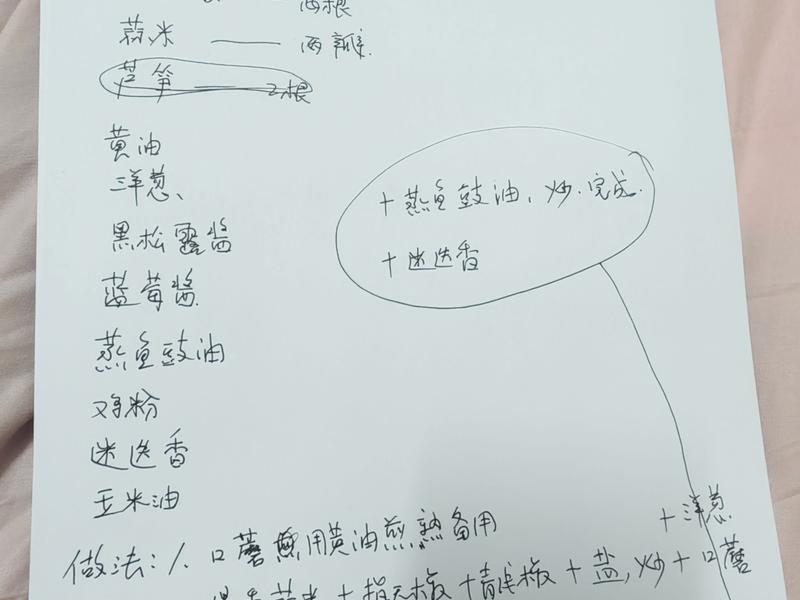 两根
蒜米 —— 两瓣
芦笋 —— 2根
黄油
洋葱、
黑松露酱
蓝莓酱
蒸鱼鼓油
鸡粉
迷迭香
玉米油
+蒸鱼鼓油,炒.完成.
+迷迭香
做法:1、口蘑用黄油煎熟备用
+洋葱
蒜米+指天椒+青尖椒+盐,炒+口蘑